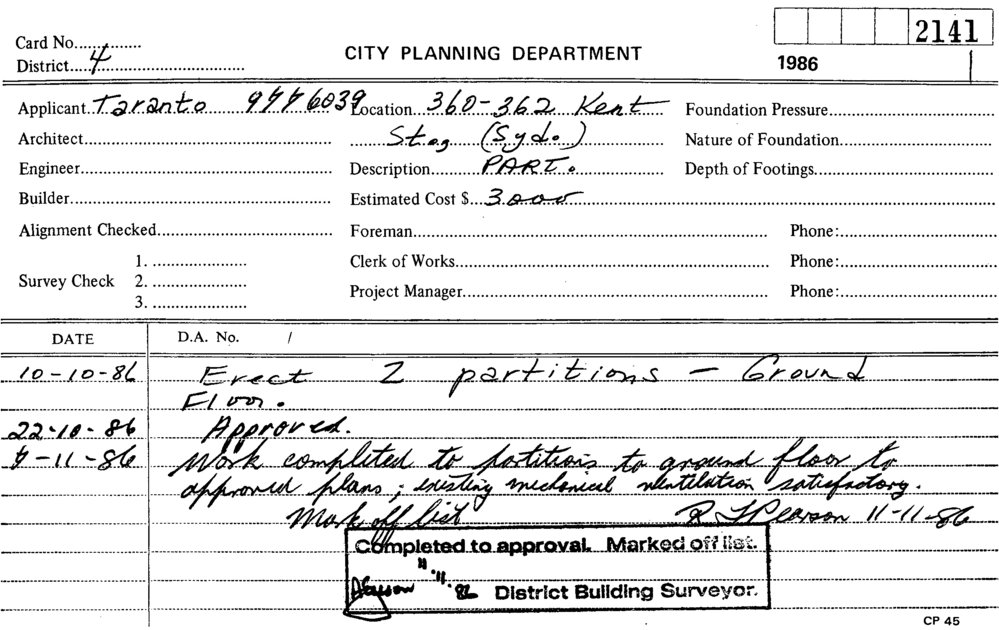 2141
Card No.
District 4
CITY PLANNING DEPARTMENT
1986
Applicant Taranto 9776039 Location 360-362 Kent Foundation Pressure
Architect (Syd.) Nature of Foundation
Engineer Description PART. Depth of Footings
Builder Estimated Cost $ 3000
Alignment Checked Foreman Phone:
Survey Check 1. Clerk of Works Phone:
2.
3. Project Manager Phone:
DATE D.A. No. /
10-10-86 Erect 2 partitions - Ground
Floor.
22-10-86 Approved.
7-11-86 Work completed to partitions to ground floor to
approved plans; existing mechanical ventilation satisfactory.
Mark off list R J Pearson 11-11-86
Completed to approval. Marked off list.
11.11.86 District Building Surveyor.
CP 45